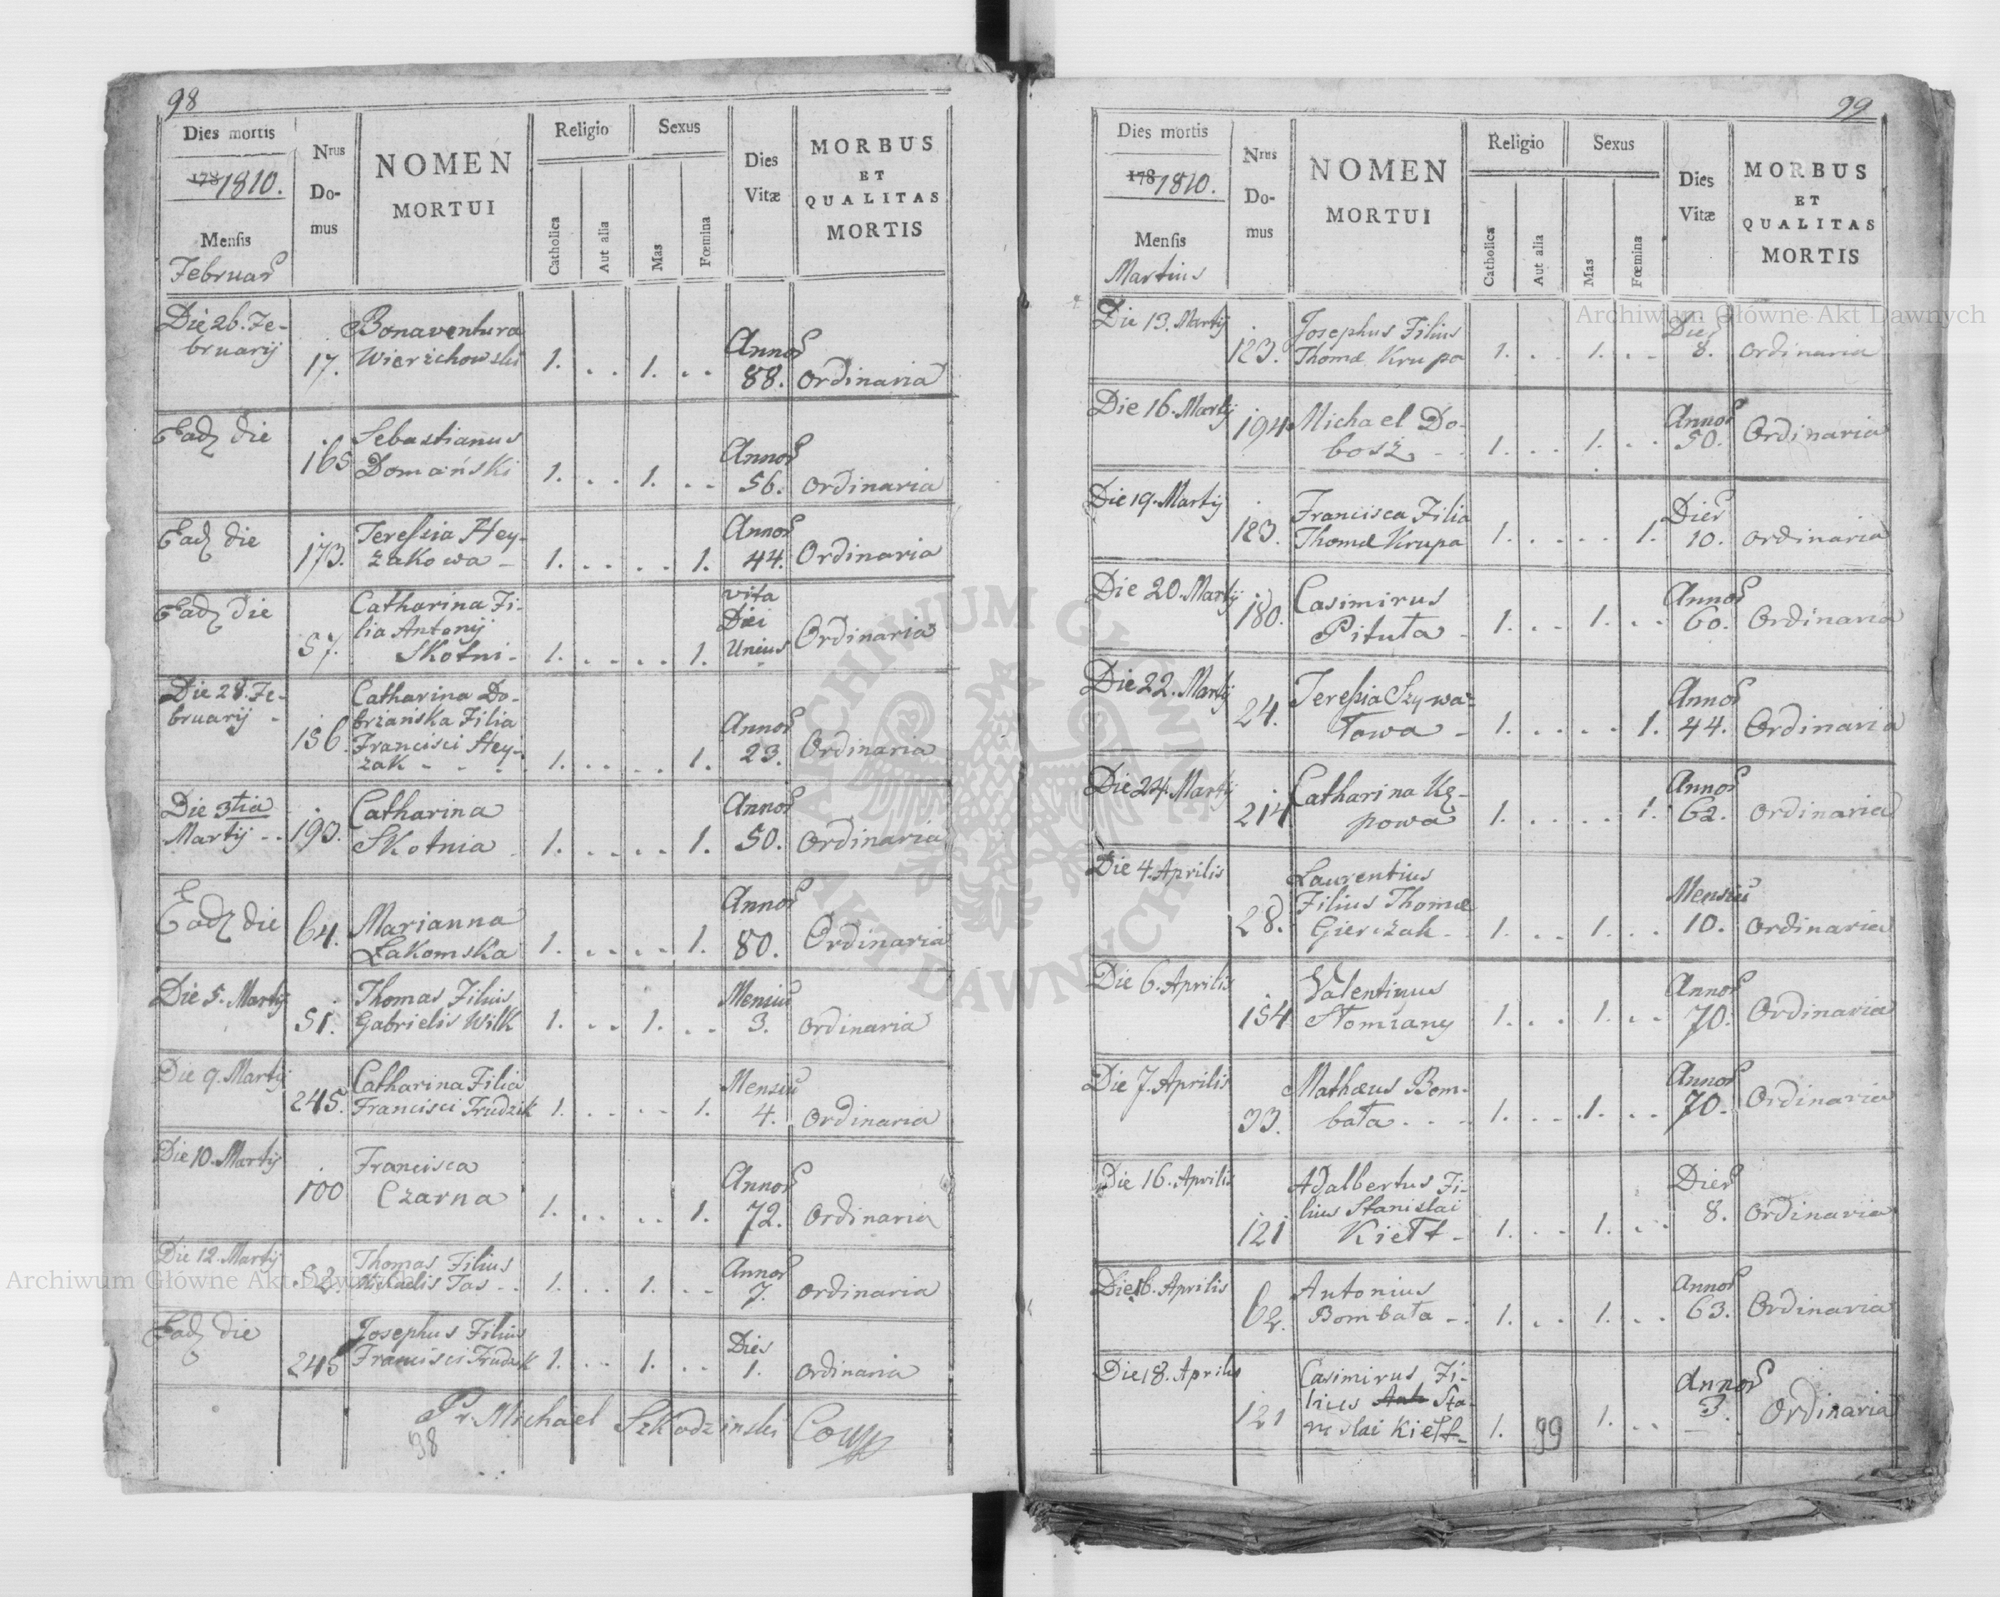 98
Dies mortis
1781810.
Mensis
Februar
Nrus
Do-
mus
NOMEN
MORTUI
Religio
Catholica
Aut alia
Sexus
Mas
Fœmina
Dies
Vitæ
MORBUS
ET
QUALITAS
MORTIS
Die 26. Fe-
bruarij
17.
Bonaventura
Wierzchowski
1. . . 1. . .
Annor
88.
Ordinaria
Ead die
165
Sebastianus
Domański
1. . . 1. . .
Annor
56.
Ordinaria
Ead die
173.
Teressia Hey-
zakowa -
1. . . . . 1.
Annor
44.
Ordinaria
Ead die
57.
Catharina Fi-
lia Antonij
Skotni -
1. . . . . 1.
vita
Diei
Unius
Ordinaria
Die 28. Fe-
bruarij -
156.
Catharina Do-
brzanska Filia
Francisci Hey-
zak - - -
1. . . . . 1.
Annor
23.
Ordinaria
Die 3tia
Martij - -
193.
Catharina
Skotnia
1. . . . . 1.
Annor
50.
Ordinaria
Ead die
64.
Marianna
Łakomska
1. . . . . 1.
Annor
80.
Ordinaria
Die 5. Martij
51.
Thomas Filius
Gabrielis Wilk
1. . . 1. . .
Mensiu
3.
Ordinaria
Die 9. Martij
245.
Catharina Filia
Francisci Trudzik
1. . . . . 1.
Mensiu
4.
Ordinaria
Die 10. Martij
100
Francisca
Czarna
1. . . . . 1.
Annor
72.
Ordinaria
Die 12. Martij
52.
Thomas Filius
Michaelis Tas - .
1. . . 1. . .
Annor
7.
Ordinaria
Ead die
245
Josephus Filius
Francisci Trudzik
1. . . 1. . .
Dies
1.
Ordinaria
Pr. Michael Szkodzinski
98
99
Dies mortis
1781810.
Mensis
Martius
Nrus
Do-
mus
NOMEN
MORTUI
Religio
Catholica
Aut alia
Sexus
Mas
Fœmina
Dies
Vitæ
MORBUS
ET
QUALITAS
MORTIS
Die 13. Martij
123.
Josephus Filius
Thomæ Krupa
1. . . 1. . .
Dier
8.
Ordinaria
Die 16. Martij
194.
Michael Do-
bosz - .
1. . . 1. . .
Annor
50.
Ordinaria
Die 19. Martij
123.
Francisca Filia
Thomæ Krupa
1. . . . . 1.
Dier
10.
Ordinaria
Die 20. Martij
180.
Casimirus
Pituła -
1. . . 1. . .
Annor
60.
Ordinaria
Die 22. Martij
24.
Teressia Szywa-
łowa -
1. . . . . 1.
Annor
44.
Ordinaria
Die 24. Martij
214
Catharina Kę-
powa
1. . . . . 1.
Annor
62.
Ordinaria
Die 4. Aprilis
28.
Laurentius
Filius Thomæ
Gierczak -
1. . . 1. . .
Mensiu
10.
Ordinaria
Die 6. Aprilis
154
Valentinus
Słomiany
1. . . 1. . .
Annor
70.
Ordinaria
Die 7. Aprilis
33.
Mathæus Bom-
bała . - -
1. . . 1. . .
Annor
70.
Ordinaria
Die 16. Aprilis
121
Adalbertus Fi-
lius Stanislai
Kiełt -
1. . . 1. . .
Dier
8.
Ordinaria
Die 16. Aprilis
62.
Antonius
Bombała -
1. . . 1. . .
Annor
63.
Ordinaria
Die 18. Aprilis
121
Casimirus Fi-
lius Ant Sta-
nislai Kiełt -
1. 1. . .
Annor
3.
Ordinaria
99
Archiwum Główne Akt Dawnych
Archiwum Główne Akt Dawnych
ARCHIWUM GŁÓWNE AKT DAWNYCH